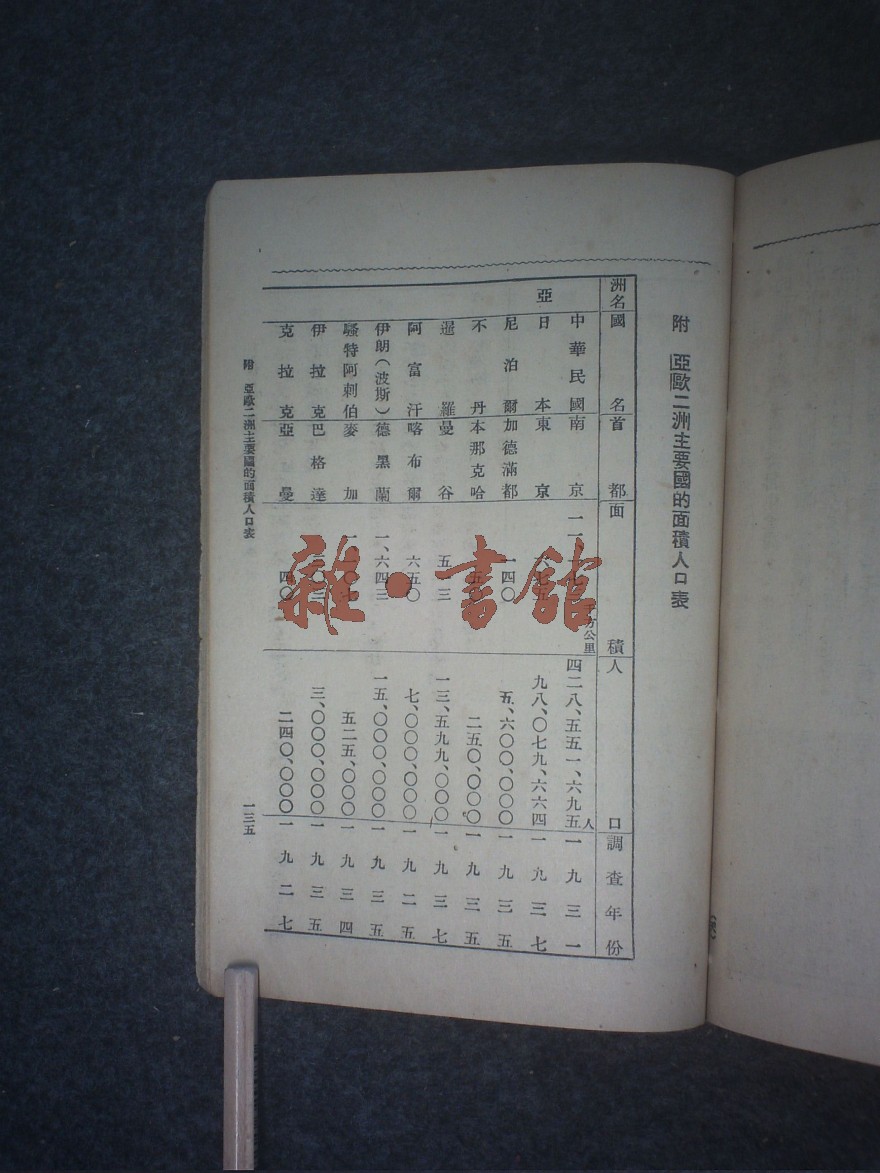 附 亞歐二洲主要國的面積人口表
洲名 國名 首都 面積 人口 調查年份
亞
中華民國 南京 千方公里 四二八、五五一、六九五人 一九三一
日本 東京 九八、〇七九、六六四 一九三七
尼泊爾 加德滿都 一四〇 五、六〇〇、〇〇〇 一九三五
不丹 本那克哈 二五〇、〇〇〇 一九三五
暹羅 曼谷 一三、五九九、〇〇〇 一九三七
阿富汗 喀布爾 六五〇 七、〇〇〇、〇〇〇 一九二五
伊朗(波斯) 德黑蘭 一、六四三 一五、〇〇〇、〇〇〇 一九三五
騷特阿剌伯 麥加 五二五、〇〇〇 一九三四
伊拉克 巴格達 三、〇〇〇、〇〇〇 一九三五
克拉克 亞曼 四〇 二四〇、〇〇〇 一九二七
附 亞歐二洲主要國的面積人口表 一三五
雜·書館